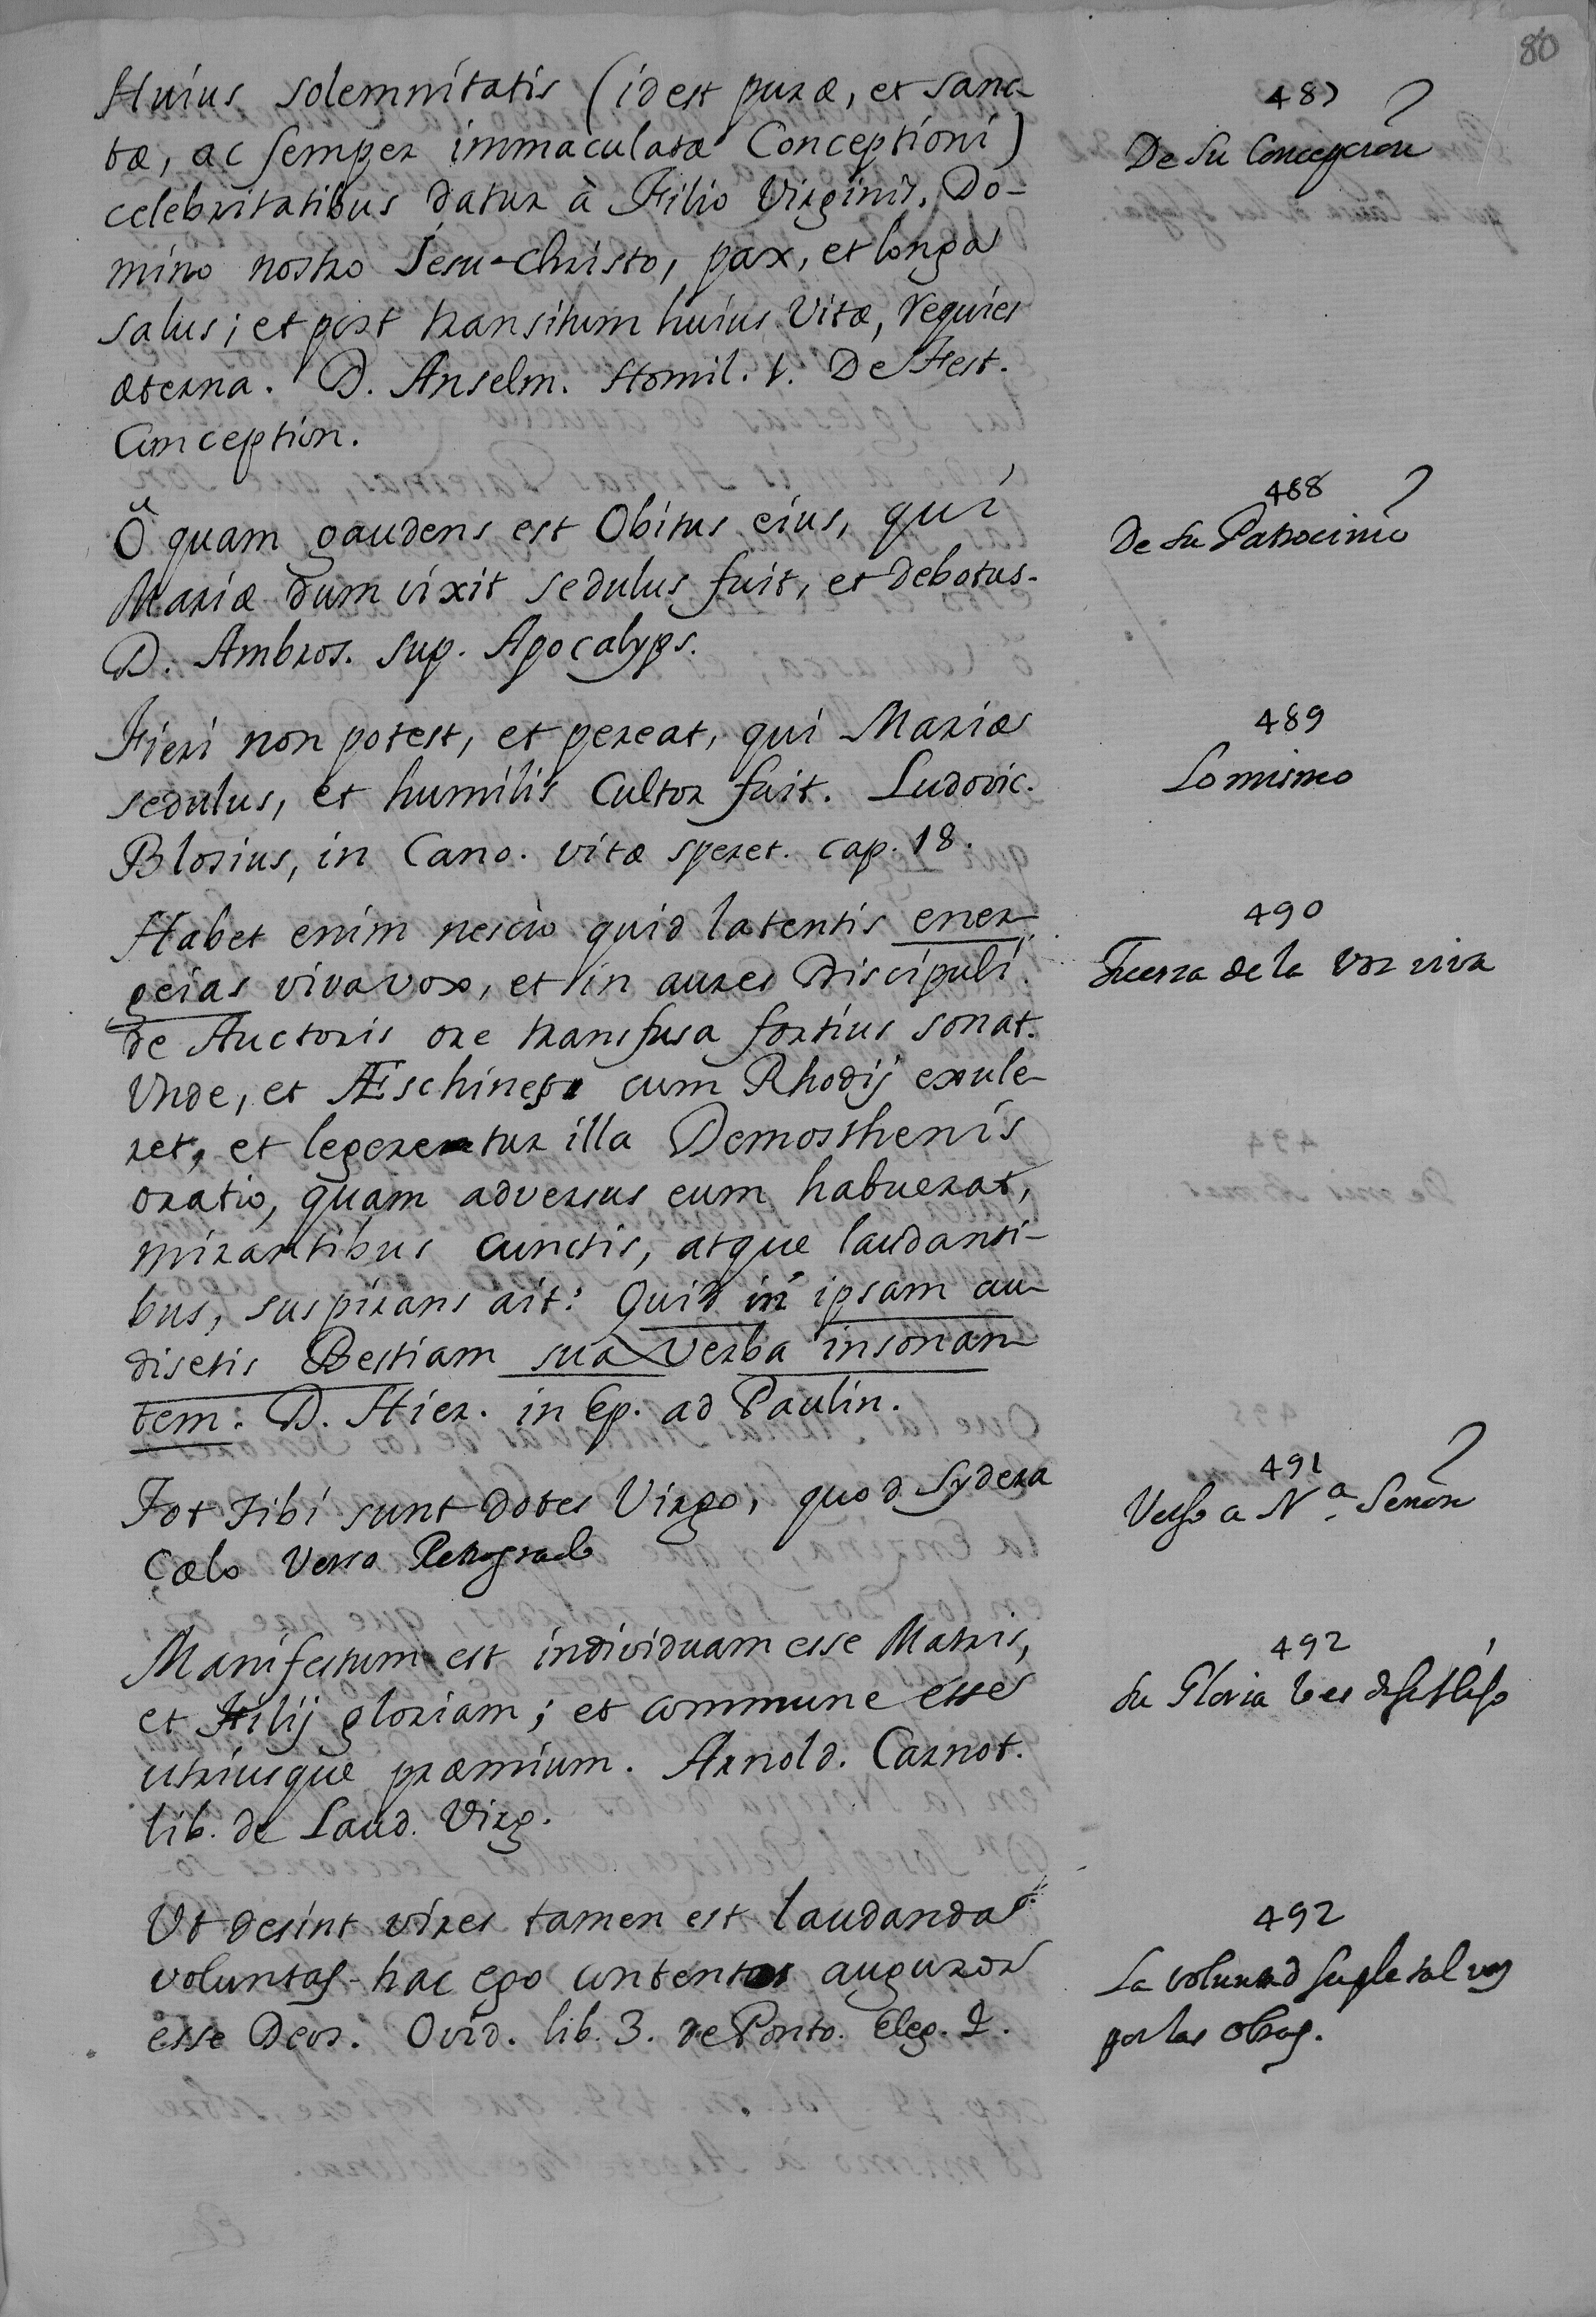 80
Huius solemnitatis (id est puræ, et sanc-
tæ, ac semper immaculatæ Conceptioni)
celebritatibus datur à Filio Virginis, Do-
mino nostro Jesu-Christo, pax, et longa
salus; et post transitum huius vitæ, requies
æterna. D. Anselm. Homil. 1. De Fest.
Conception.
487
De su Concepcion
O quam gaudens est Obitus eius, qui
Mariæ dum vixit sedulus fuit, et debotus.
D. Ambros. sup. Apocalyps.
488
De su Patrocinio
Fieri non potest, et pereat, qui Mariæ
sedulus, et humilis Cultor fuit. Ludovic.
Blosius, in Cano. vitæ speret. cap. 18.
489
Lo mismo
Habet enim nescio quid latentis ener-
geias viva vox, et in aures Discipuli
de Auctoris ore transfusa fortius sonat.
Unde, et Æschines cum Rhodij exule-
ret, et legeretur illa Demosthenis
oratio, quam adversus eum habuerat,
mirantibus cunctis, atque laudanti-
bus, suspirans ait: Quid in ipsam au-
disetis Bestiam sua verba insonan-
tem. D. Hier. in Ep. ad Paulin.
490
Fuerza de la voz viva
Tot tibi sunt dotes Virgo, quod Sydera
Cælo Verso Retrogrado
491
Verso a Nª. Señora
Manifestum est individuam esse Matris,
et Filij gloriam; et commune esse
utriusque præmium. Arnold. Carnot.
lib. de Laud. Virg.
492
Su Gloria
Ut desint vires tamen est laudanda
voluntas - hac ego contentos auguror
esse Deos. Ovid. lib. 3. de Ponto. Eleg. 2.
492
La voluntad suple tal vez
por las obras.